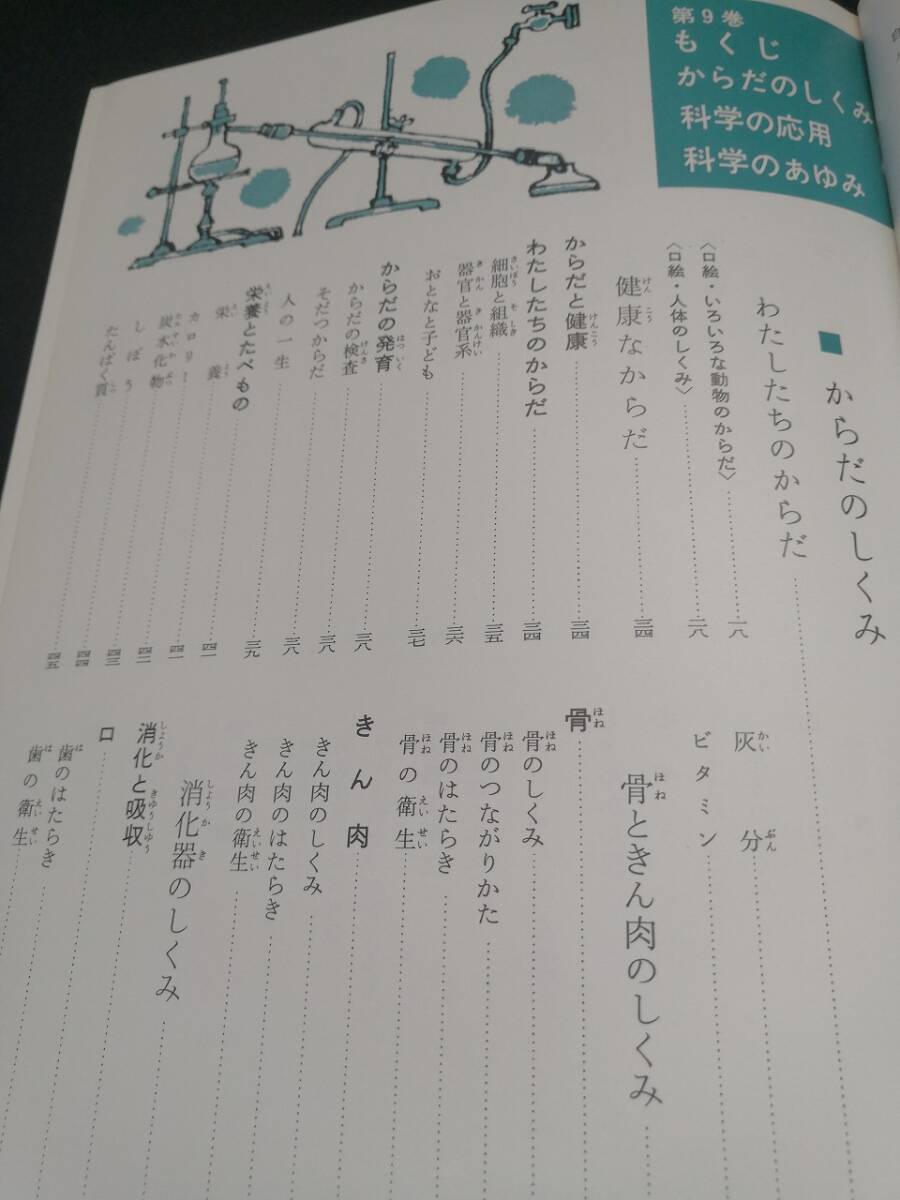 第9巻
もくじ
からだのしくみ
科学の応用
科学のあゆみ
■からだのしくみ
わたしたちのからだ
〈口絵・いろいろな動物のからだ〉 一八
〈口絵・人体のしくみ〉 二八
健康なからだ 三四
からだと健康 三四
わたしたちのからだ 三四
細胞と組織 三五
器官と器官系 三六
おとなと子ども 三七
からだの発育 三八
からだの検査 三八
そだつからだ 三八
人の一生 三九
栄養とたべもの 四一
栄養 四一
カロリー 四二
炭水化物 四三
しぼう 四四
たんぱく質 四五
灰分
ビタミン
骨ときん肉のしくみ
骨
骨のしくみ
骨のつながりかた
骨のはたらき
骨の衛生
きん肉
きん肉のしくみ
きん肉のはたらき
きん肉の衛生
消化器のしくみ
消化と吸収
口
歯のはたらき
歯の衛生